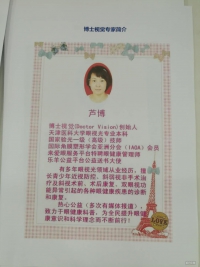 博士视觉专家简介
芦博
博士视觉(Doctor Vision)创始人
天津医科大学眼视光专业本科
国家验光一级(高级)技师
国际角膜塑形学会亚洲分会(IAOA)会员
米爱眼服务平台特聘眼健康管理师
乐羊公益平台公益读书大使
有多年眼视光领域从业经历,擅
长青少年近视防控、斜弱视非手术治
疗及斜视术前、术后康复、双眼视功
能异常引发的各种视觉疾患的诊断和
康复。
热心公益(多次有媒体报道),
致力于眼健康科普,为全民提升眼健
康意识和科学理念而不断前行!
LOVE